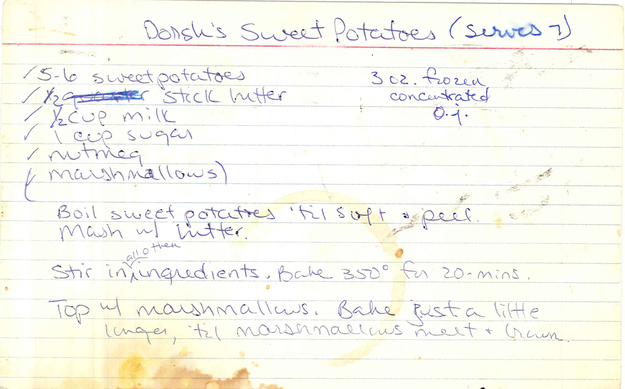 Dorsh's Sweet Potatoes (serves 7)
✓ 5-6 sweet potatoes
✓ 1/2 stick butter
✓ 1/2 cup milk
✓ 1 cup sugar
✓ nutmeg
( marshmallows)
3 oz. frozen
concentrated
o.j.
Boil sweet potatoes 'til soft & peel.
Mash w/ butter.
Stir in all other ingredients. Bake 350° for 20-mins.
Top w/ marshmallows. Bake just a little
longer, 'til marshmallows melt + brown.